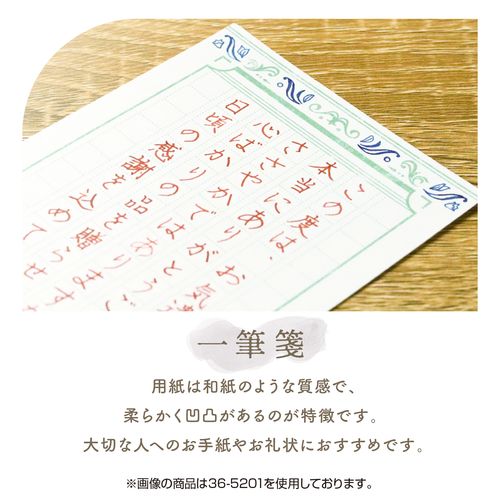 この度は、お気
本当にありがとうご
ささやかではあります
心ばかりの品を贈らせ
日頃の感謝を込めて
一筆箋
用紙は和紙のような質感で、
柔らかく凹凸があるのが特徴です。
大切な人へのお手紙やお礼状におすすめです。
※画像の商品は36-5201を使用しております。